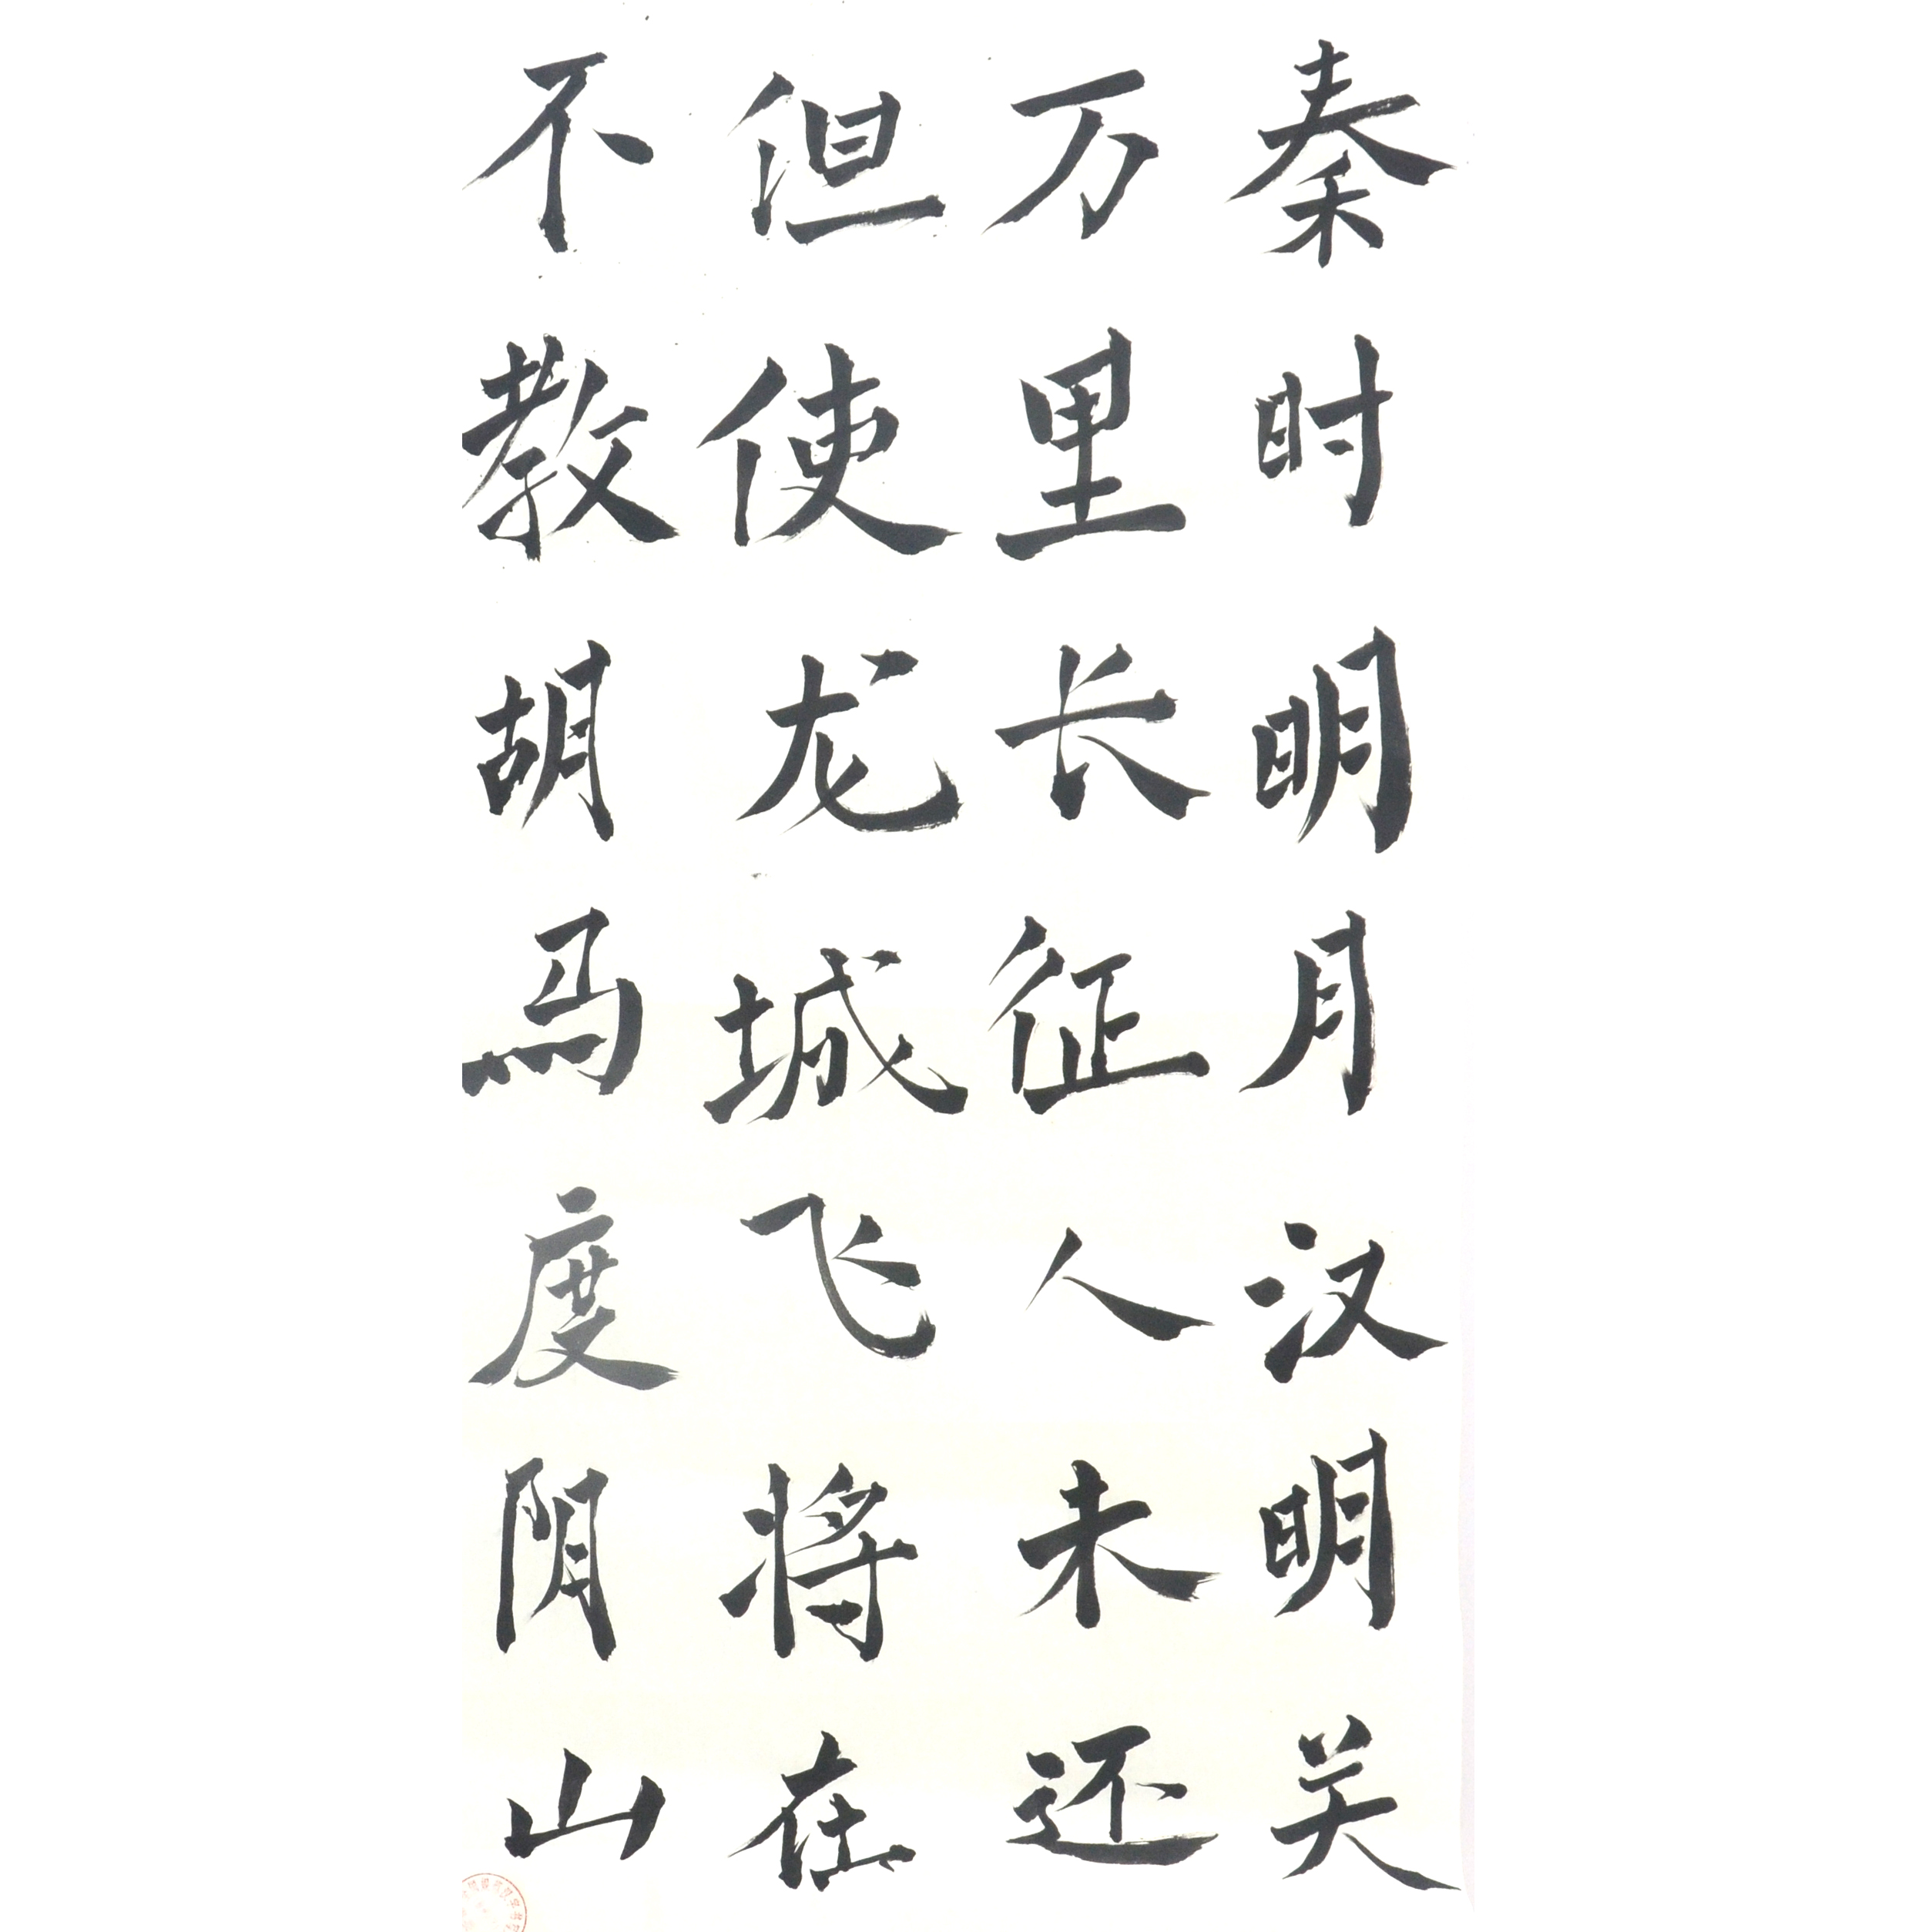 秦时明月汉明关
万里长征人未还
但使龙城飞将在
不教胡马度阴山